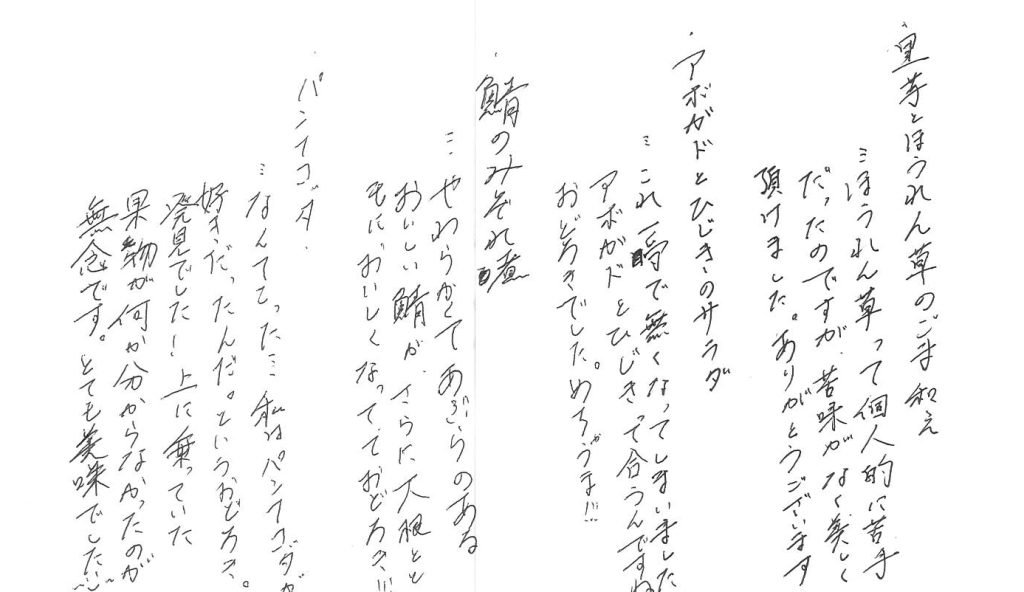 ・里芋とほうれん草のごま和え
…ほうれん草って個人的に苦手
だったのですが、苦味がなく美しく
頂けました。ありがとうございます
・アボガドとひじきのサラダ
…これ一瞬で無くなってしまいました
アボガドとひじきって合うんですね
おどろきでした。めちゃうま!!!
・鯖のみぞれ煮
…やわらかくてあぶらのある
おいしい鯖が、さらに大根とと
もに、おいしくなって、ておどろき!!!
・パンナコッタ
…なんてこった…私はパンナコッタが
好きだったんだ。というおどろき。
発見でした!上に乗っていた
果物が何か分からなかったのが
無念です。とても美味でした